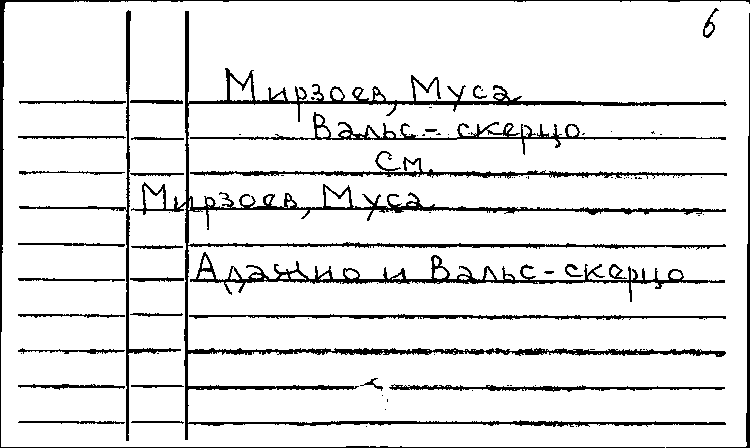 6
Мирзоев, Муса
Вальс - скерцо
См.
Мирзоев, Муса
Адажио и Вальс-скерцо